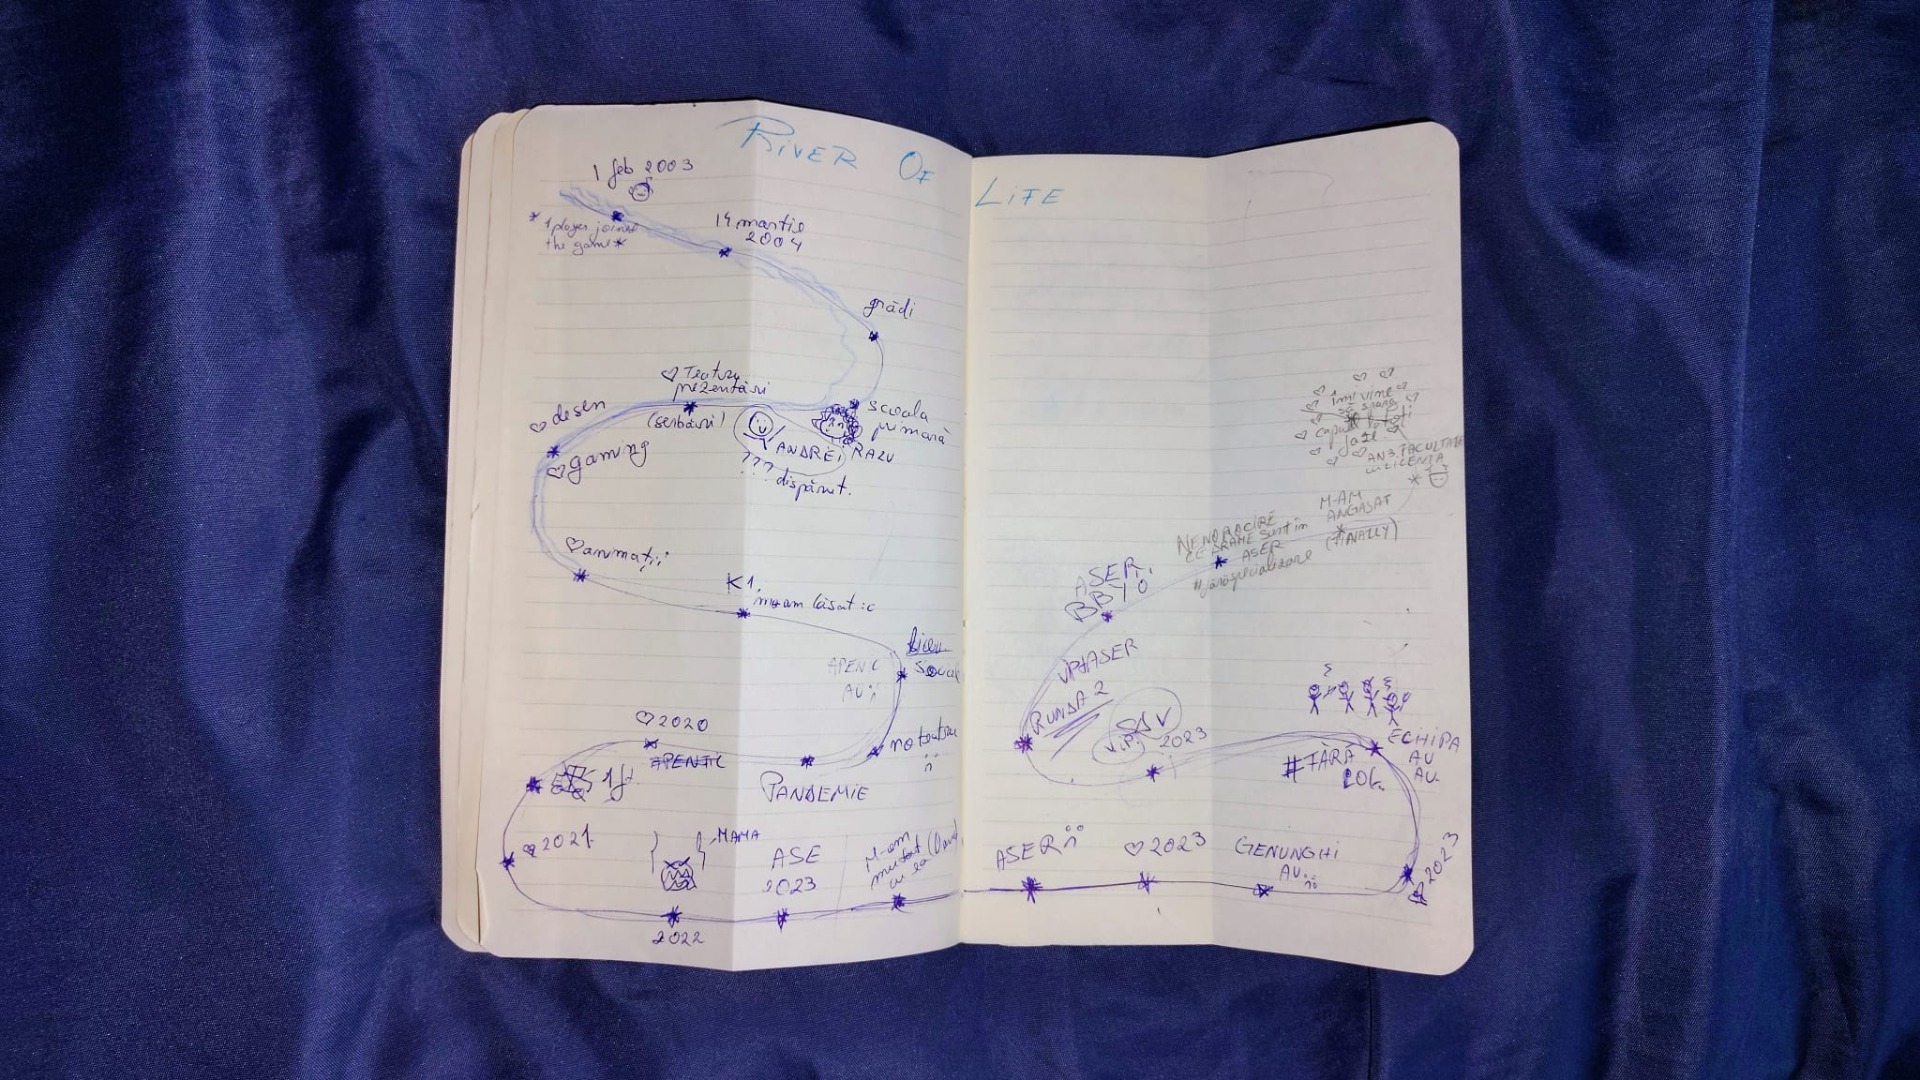 RIVER OF LIFE
1 feb 2003
* 1 player joined
the game *
14 martie
2004
grădi
școala
primară
RAZU
ANDREI
???
dispărut.
♡ Teatru
prezentări
(serbări)
♡ desen
♡ gaming
♡ animații
K1,
m-am lăsat :c
liceu
APENIC
AU
no teatru
PANDEMIE
♡ 2020
APENIC
♡ 2021
MAMA
2022
ASE
2023
M-am
mutat
cu ea
ASER
♡ 2023
GENUNGHI
AU
2023
ECHIPA
AU
AU
#FĂRĂ
2023
RUNDA 2
ASER
NENOROCIRE
CE DRAME SUNT în
ASER
#fărăspecializare
M-AM
ANGAJAT
(FINALLY)
AN 3 FACULTATE
LICENȚĂ
îmi vine
să sparg
capul